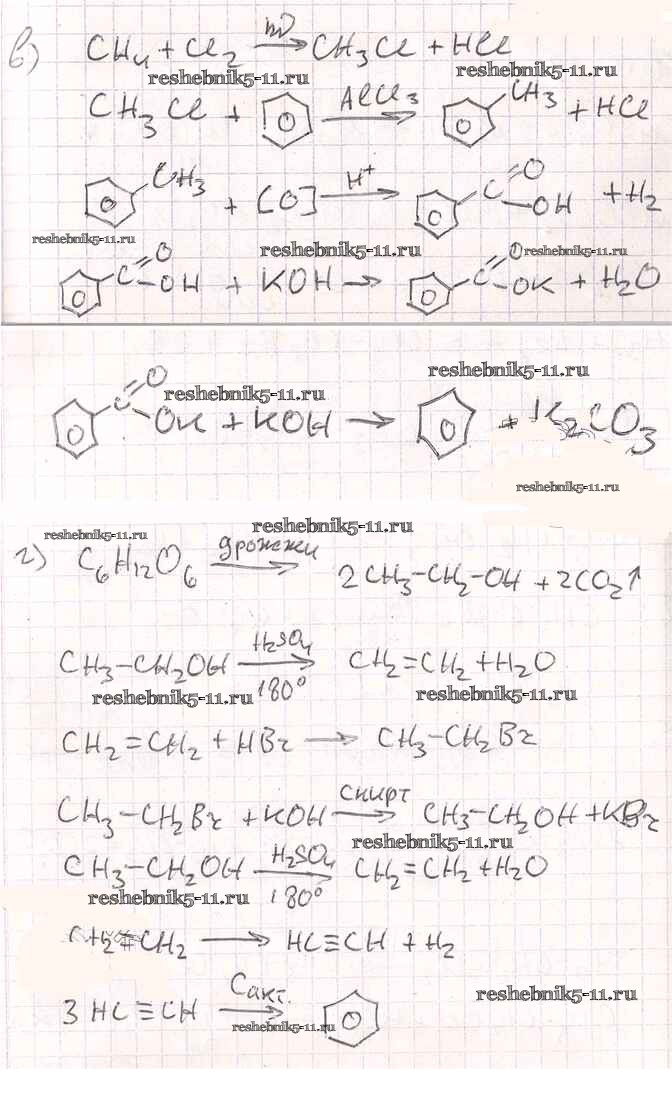 в) CH₄ + Cl₂ →hν CH₃Cl + HCl
reshebnik5-11.ru reshebnik5-11.ru
CH₃Cl + →AlCl₃ CH₃ + HCl
CH₃ + [O] →H⁺ C O OH + H₂
reshebnik5-11.ru reshebnik5-11.ru reshebnik5-11.ru
C O OH + KOH → C O OK + H₂O
reshebnik5-11.ru reshebnik5-11.ru
C O OK + KOH → + K₂CO₃
reshebnik5-11.ru
reshebnik5-11.ru reshebnik5-11.ru
г) C₆H₁₂O₆ →дрожжи 2CH₃-CH₂-OH + 2CO₂↑
CH₃-CH₂OH →H₂SO₄ 180° CH₂=CH₂ + H₂O
reshebnik5-11.ru reshebnik5-11.ru
CH₂=CH₂ + HBr → CH₃-CH₂Br
CH₃-CH₂Br + KOH →спирт CH₃-CH₂OH + KBr
reshebnik5-11.ru
CH₃-CH₂OH →H₂SO₄ 180° CH₂=CH₂ + H₂O
reshebnik5-11.ru
CH₂=CH₂ → HC≡CH + H₂
reshebnik5-11.ru
3HC≡CH →Cакт.
reshebnik5-11.ru